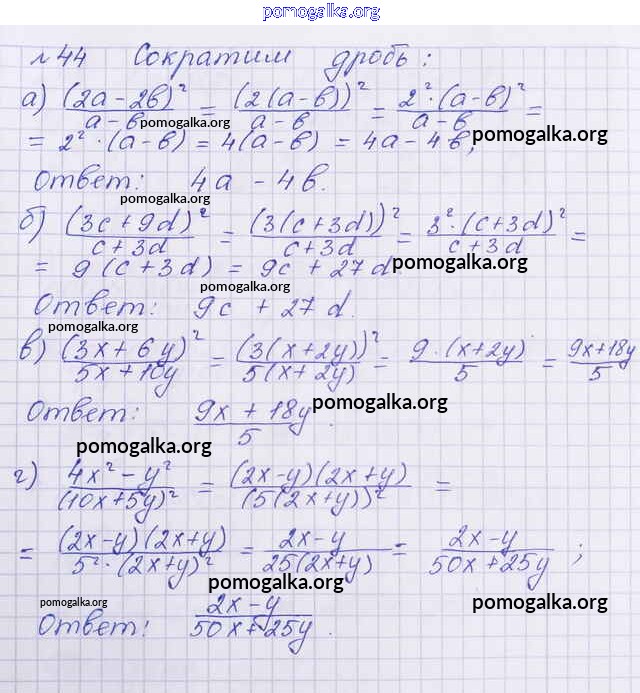 pomogalka.org
№44 Сократим дробь:
а) (2a-2в)²/a-в = (2(a-в))²/a-в = 2²·(a-в)²/a-в =
pomogalka.org
pomogalka.org
= 2²·(a-в) = 4(a-в) = 4a-4в,
Ответ: 4a-4в.
pomogalka.org
б) (3c+9d)²/c+3d = (3(c+3d))²/c+3d = 3²·(c+3d)²/c+3d =
= 9(c+3d) = 9c+27d
pomogalka.org
pomogalka.org
Ответ: 9c+27d.
pomogalka.org
в) (3x+6y)²/5x+10y = (3(x+2y))²/5(x+2y) = 9·(x+2y)/5 = 9x+18y/5
Ответ: 9x+18y/5.
pomogalka.org
pomogalka.org
г) 4x²-y²/(10x+5y)² = (2x-y)(2x+y)/(5(2x+y))² =
= (2x-y)(2x+y)/5²·(2x+y)² = 2x-y/25(2x+y) = 2x-y/50x+25y;
pomogalka.org
pomogalka.org
pomogalka.org
Ответ: 2x-y/50x+25y.